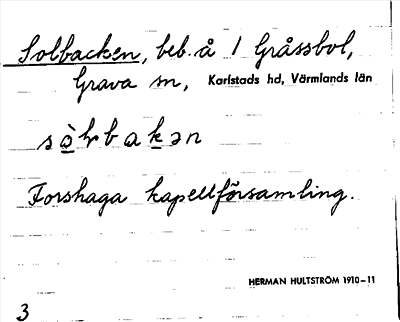 Solbacken, beb. å 1 Gråssbol,
Grava sn, Karlstads hd, Värmlands län
Forshaga kapellförsamling.
HERMAN HULTSTRÖM 1910–11
3